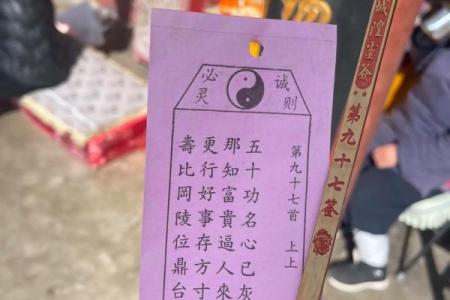 誠則
必灵
第九十七首 上上
五十功名心已灰
那知富貴逼人來
更行好事存方寸
壽比岡陵位鼎台
城隍灵签
第九十七签